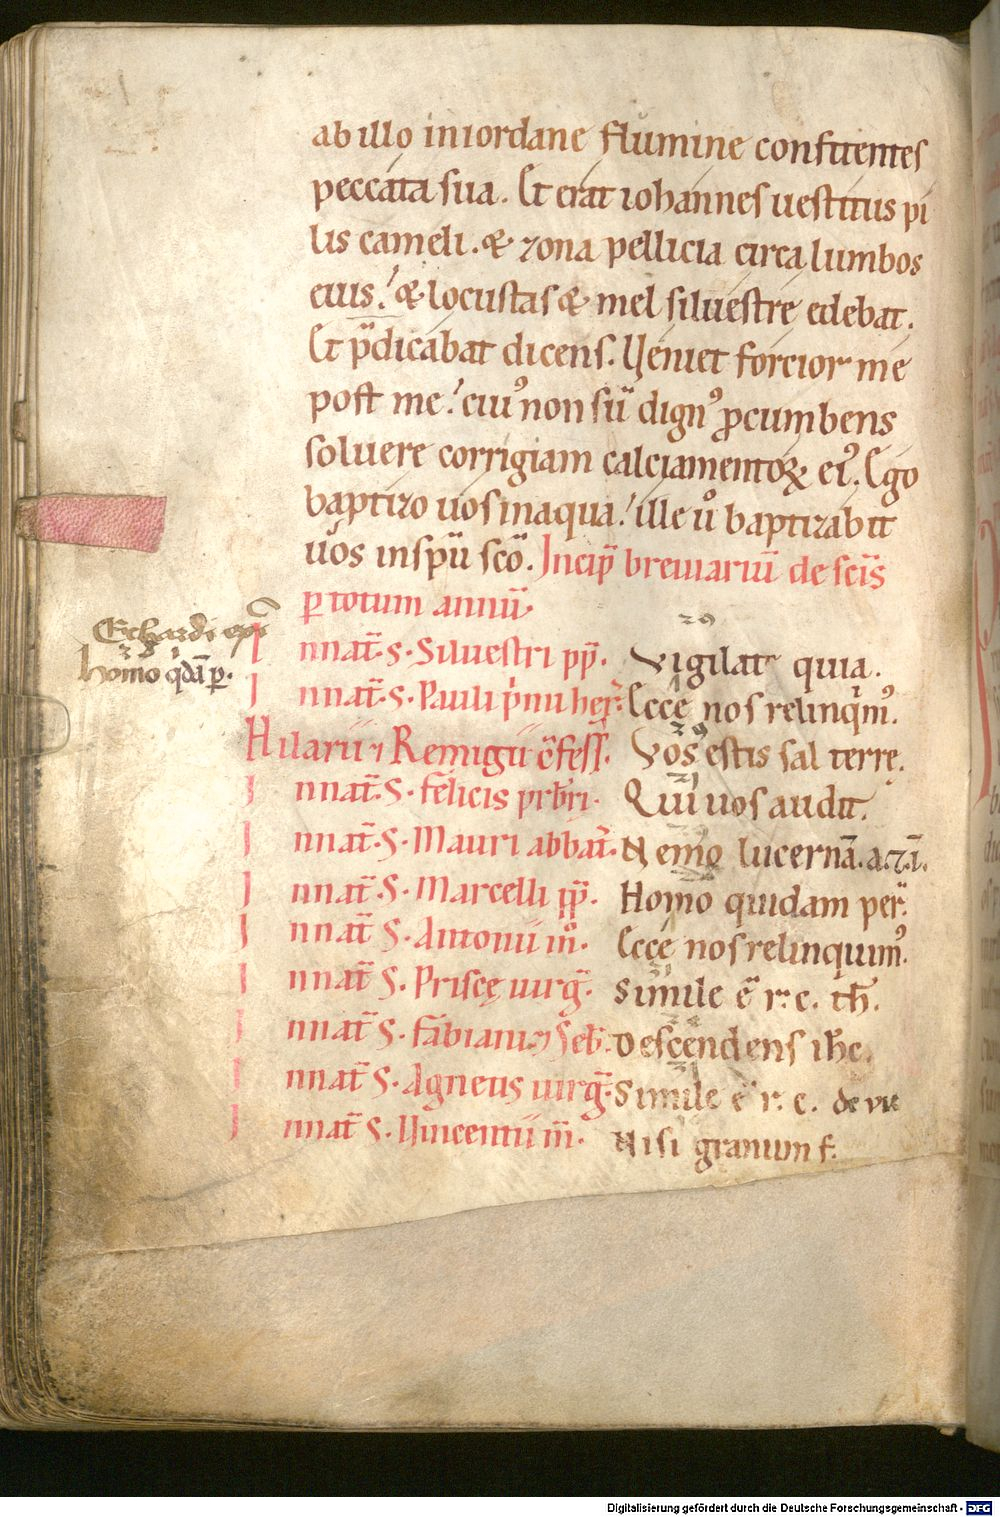 ab illo in iordane flumine confitentes
peccata sua. Et erat iohannes uestitus pi
lis cameli. & zona pellicia circa lumbos
eius. & locustas & mel siluestre edebat.
Et p̄dicabat dicens. Veniet forcior me
post me. cui᷒ non sū dign᷒ ꝓcumbens
soluere corrigiam calciamentoꝝ ei᷒. Ego
baptizo uos in aqua. ille ů baptizabit
uos in spū sc̄o. Incip̄ breuiariū de sc̄is
ꝑ totum annū.
Erhardi ep̄i
Homo qdā p.
I n nat̄. S. Siluestri pp̄. Vigilate quia.
I n nat̄. S. Pauli p̄mi her̄. Ecce nos relinqm᷒.
Hilarii ⁊ Remigii ↄ̄fess̄. Vos estis sal terrę.
I n nat̄. S. Felicis prb̄ri. Qui uos audit.
I n nat̄. S. Mauri abbat̄. Nemo lucernā. a. ⁊. i.
I n nat̄. S. Marcelli pp̄. Homo quidam per̄.
I n nat̄ S. Antonii m̊. Ecce nos relinquim᷒.
I n nat̄ S. Priscę uirḡ. Simile ē r. c. th̄.
I n nat̄ S. Fabiani ⁊ Seb̄. Descendens ih̄c.
I n nat̄ S. Agnetis uirḡ. Simile ē r. c. de vir
I n nat̄ S. Vincentii m̄. Nisi granum f.
Digitalisierung gefördert durch die Deutsche Forschungsgemeinschaft - DFG